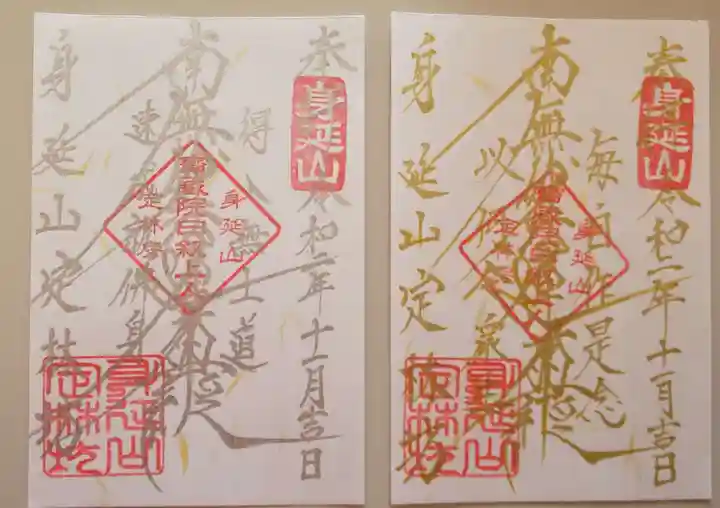 奉
身延山
令和二年十一月吉日
得入無上道
南無妙法蓮華経
速成就佛身
身延山
身延山定林坊
身延山定林坊
奉
身延山
令和二年十一月吉日
毎自作是念
南無妙法蓮華経
以何令衆生
身延山
定林坊
身延山定林坊
身延山定林坊